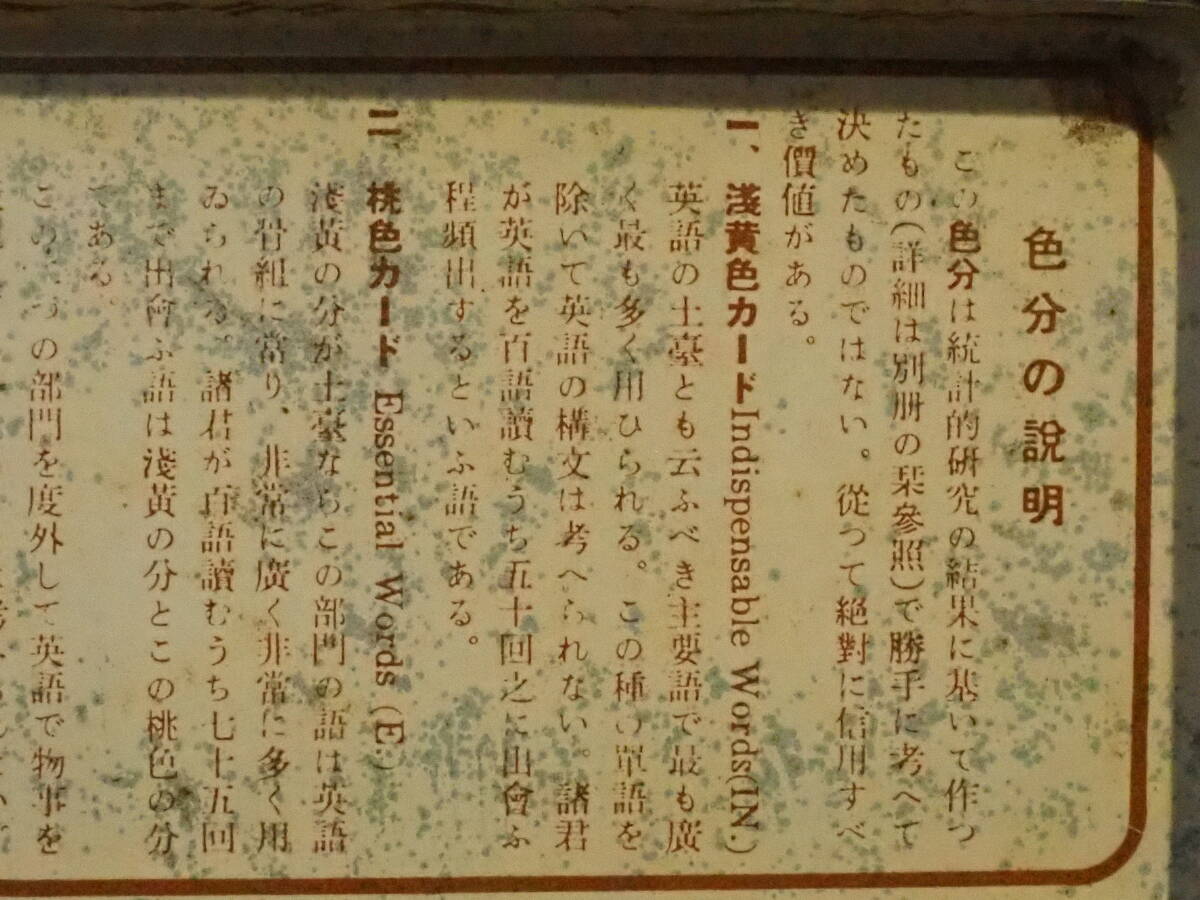 色分の說明
この色分は統計的研究の結果に基いて作つ
たもの(詳細は別册の栞參照)で勝手に考へて
決めたものではない。從つて絶對に信用すべ
き價値がある。
一、淺黄色カード Indispensable Words(IN.)
英語の土臺とも云ふべき主要語で最も廣
く最も多く用ひられる。この種の單語を
除いて英語の構文は考へられない。諸君
が英語を百語讀むうち五十回之に出會ふ
程頻出するといふ語である。
二、桃色カード Essential Words (E.)
淺黄の分が土臺ならこの部門の語は英語
の骨組に當り、非常に廣く非常に多く用
ゐられる。諸君が百語讀むうち七十五回
まで出會ふ語は淺黄の分とこの桃色の分
である。
この二つの部門を度外して英語で物事を